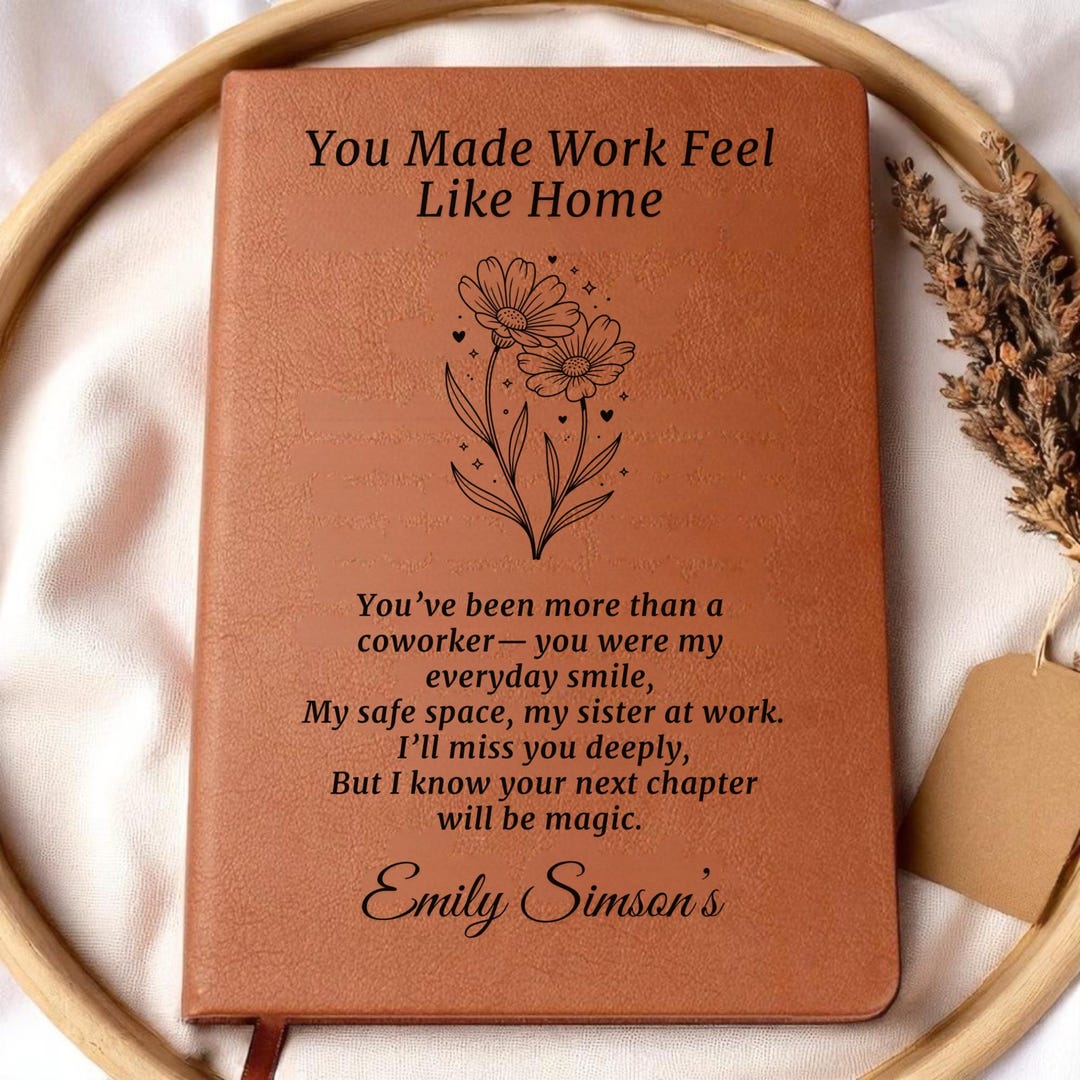 You Made Work Feel
Like Home
You’ve been more than a
coworker— you were my
everyday smile,
My safe space, my sister at work.
I’ll miss you deeply,
But I know your next chapter
will be magic.
Emily Simson’s